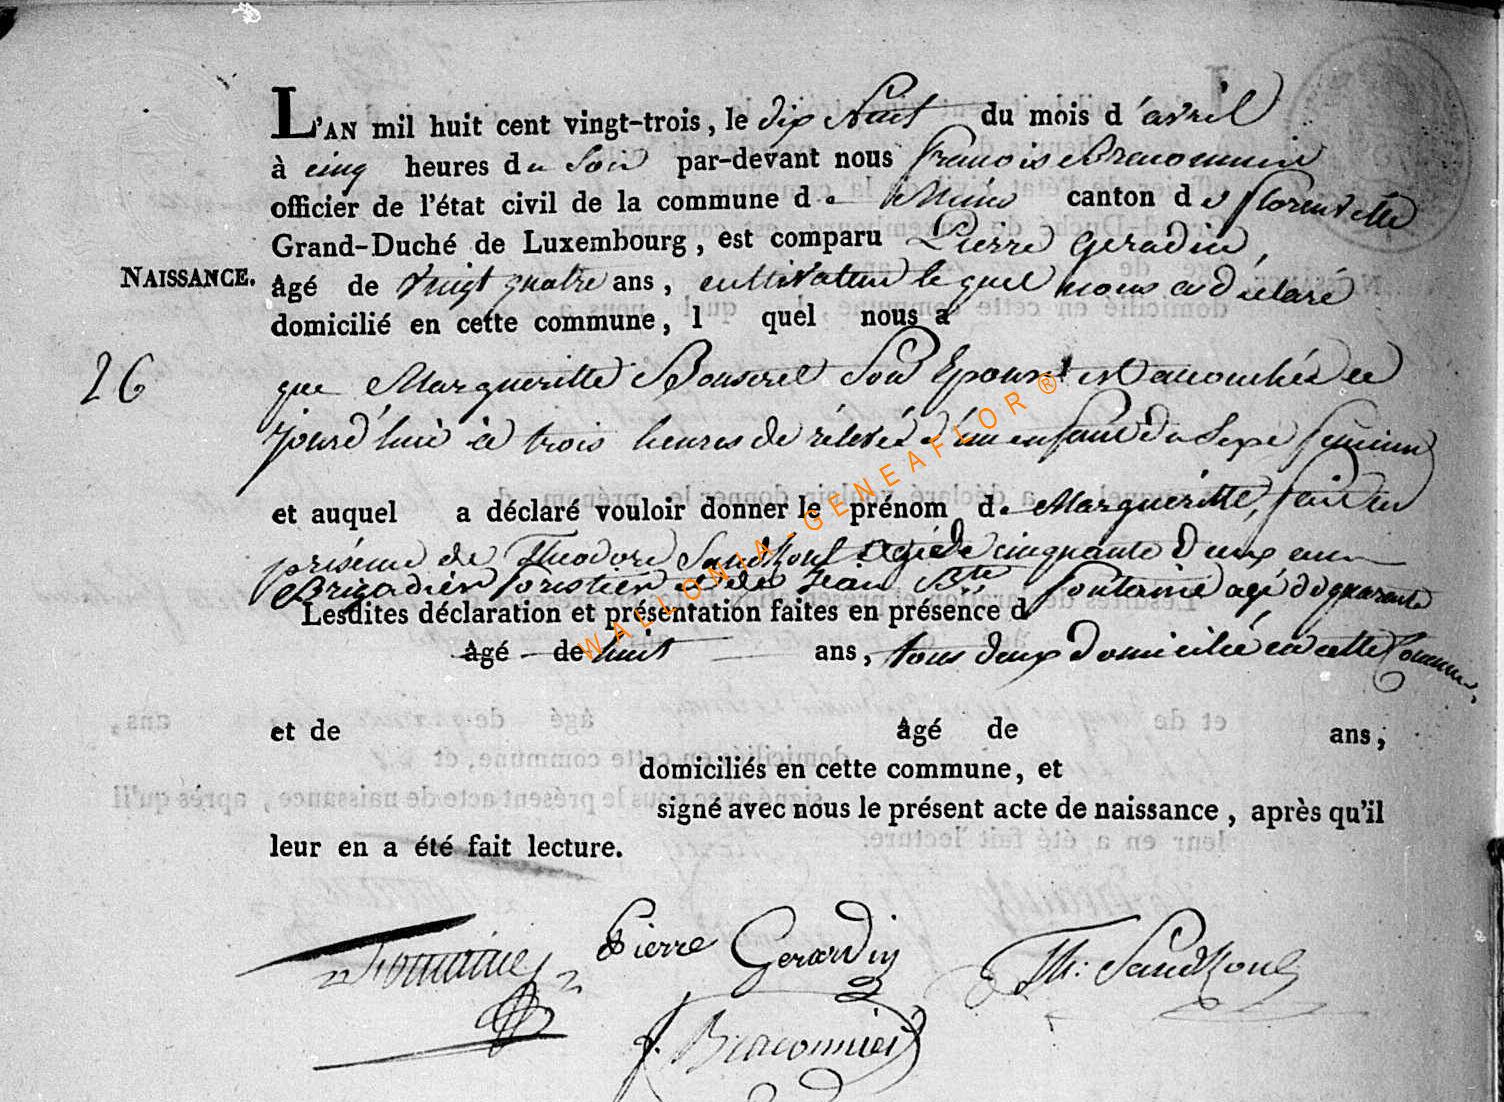 L'AN mil huit cent vingt-trois, le dix huit du mois d'avril
à cinq heures du Soir par-devant nous francois Braconnier
officier de l'état civil de la commune de Muno canton de florenville
Grand-Duché de Luxembourg, est comparu Pierre Geradin,
NAISSANCE.
âgé de vingt quatre ans, cultivateur lequel nous a déclaré
domicilié en cette commune, l quel nous a
26
que Margueritte Son Epouse est accouchée ce
jourd'hui à trois heures de rélevée d'un enfant du Sexe féminin
et auquel a déclaré vouloir donner le prénom de Margueritte, fait en
présence de Théodore Sandkoul agé de cinquante Deux ans
Brigadier forestier et de Jean Bte fontaine agé de quarante
Lesdites déclaration et présentation faites en présence d
âgé de huit ans, tous deux Domicilié en cette Commune,
et de âgé de ans,
domiciliés en cette commune, et
signé avec nous le présent acte de naissance, après qu'il
leur en a été fait lecture.
Fontaine Pierre Gerardin Th: Sandkoul
f. Braconnier
WALLONIA-GENEAFLOR®